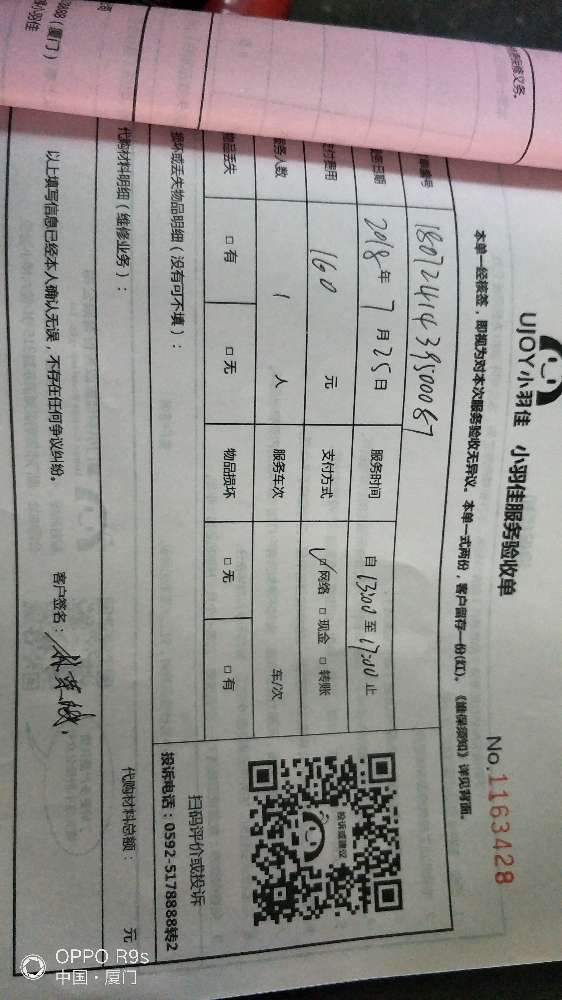 UJOY小羽佳 小羽佳服务验收单
No.1163428
本单一经核签，即视为对本次服务验收无异议。本单一式两份，客户留存一份(红)。《维保须知》详见背面。
编号 180724143950087
服务日期 2018年7月25日 服务时间 自13:00至17:00止
支付费用 160元 支付方式 ✓网络 □现金 □转账
服务人数 1人 服务车次 车/次
物品丢失 □有 □无 物品损坏 □无 □有
损坏或丢失物品明细（没有可不填）：
投诉或建议
扫码评价或投诉
投诉电话：0592-5178888转2
代购材料明细（维修业务）：
代购材料总额： 元
以上填写信息已经本人确认无误，不存在任何争议纠纷。
客户签名：
修义务。
（厦门）
小羽佳
OPPO R9s
中国·厦门